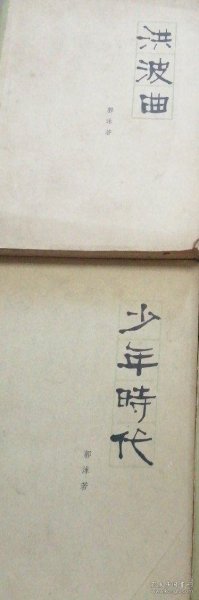 洪波曲
郭沫著
少年時代
郭沫著